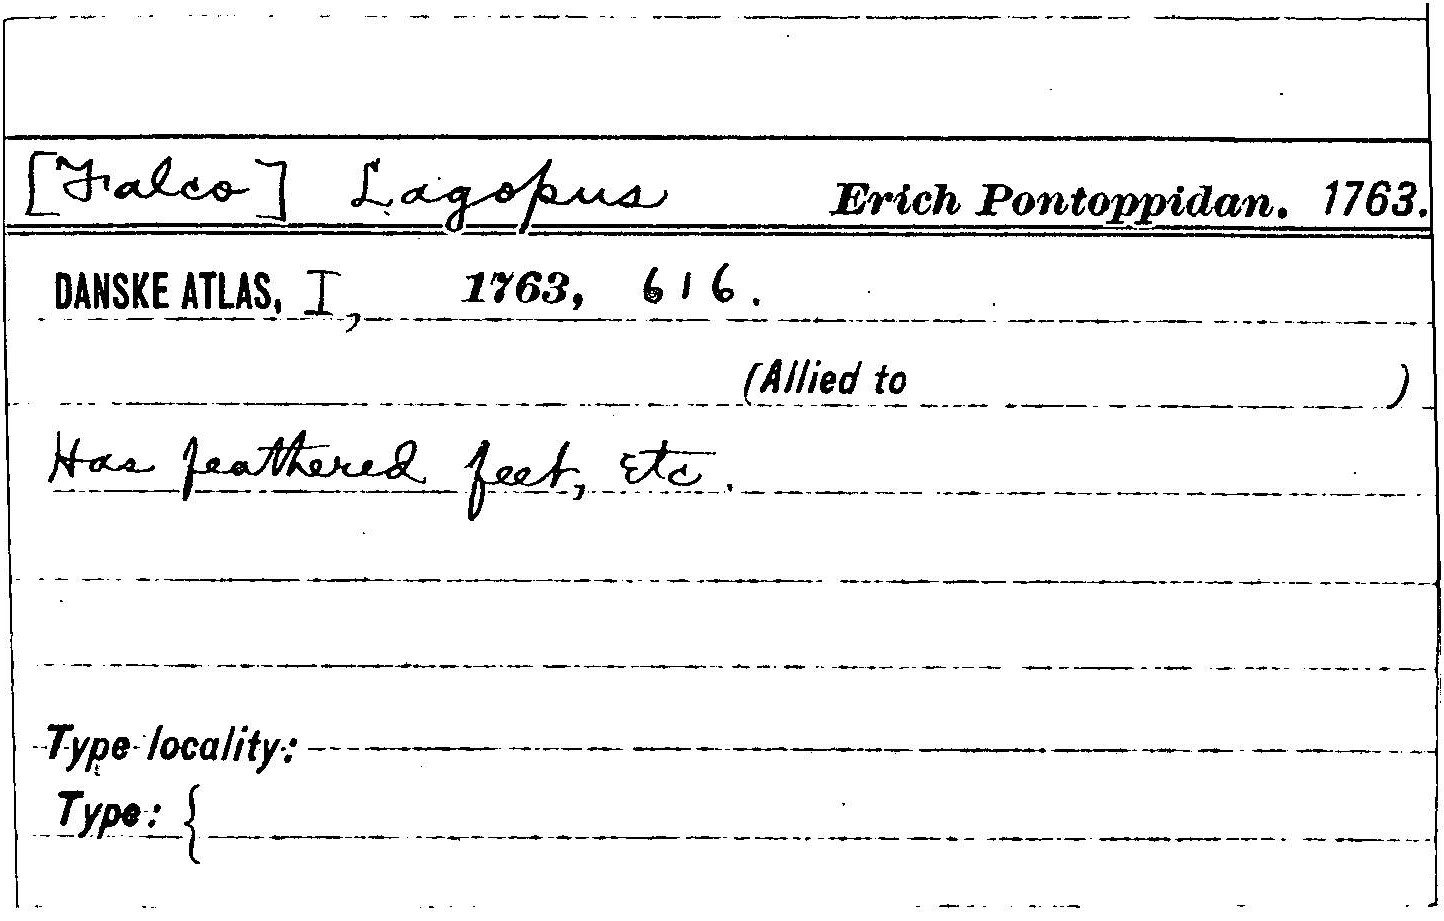 [Falco] Lagopus Erich Pontoppidan. 1763.
DANSKE ATLAS, I, 1763, 616.
(Allied to )
Has feathered feet, etc.
Type locality:
Type: {